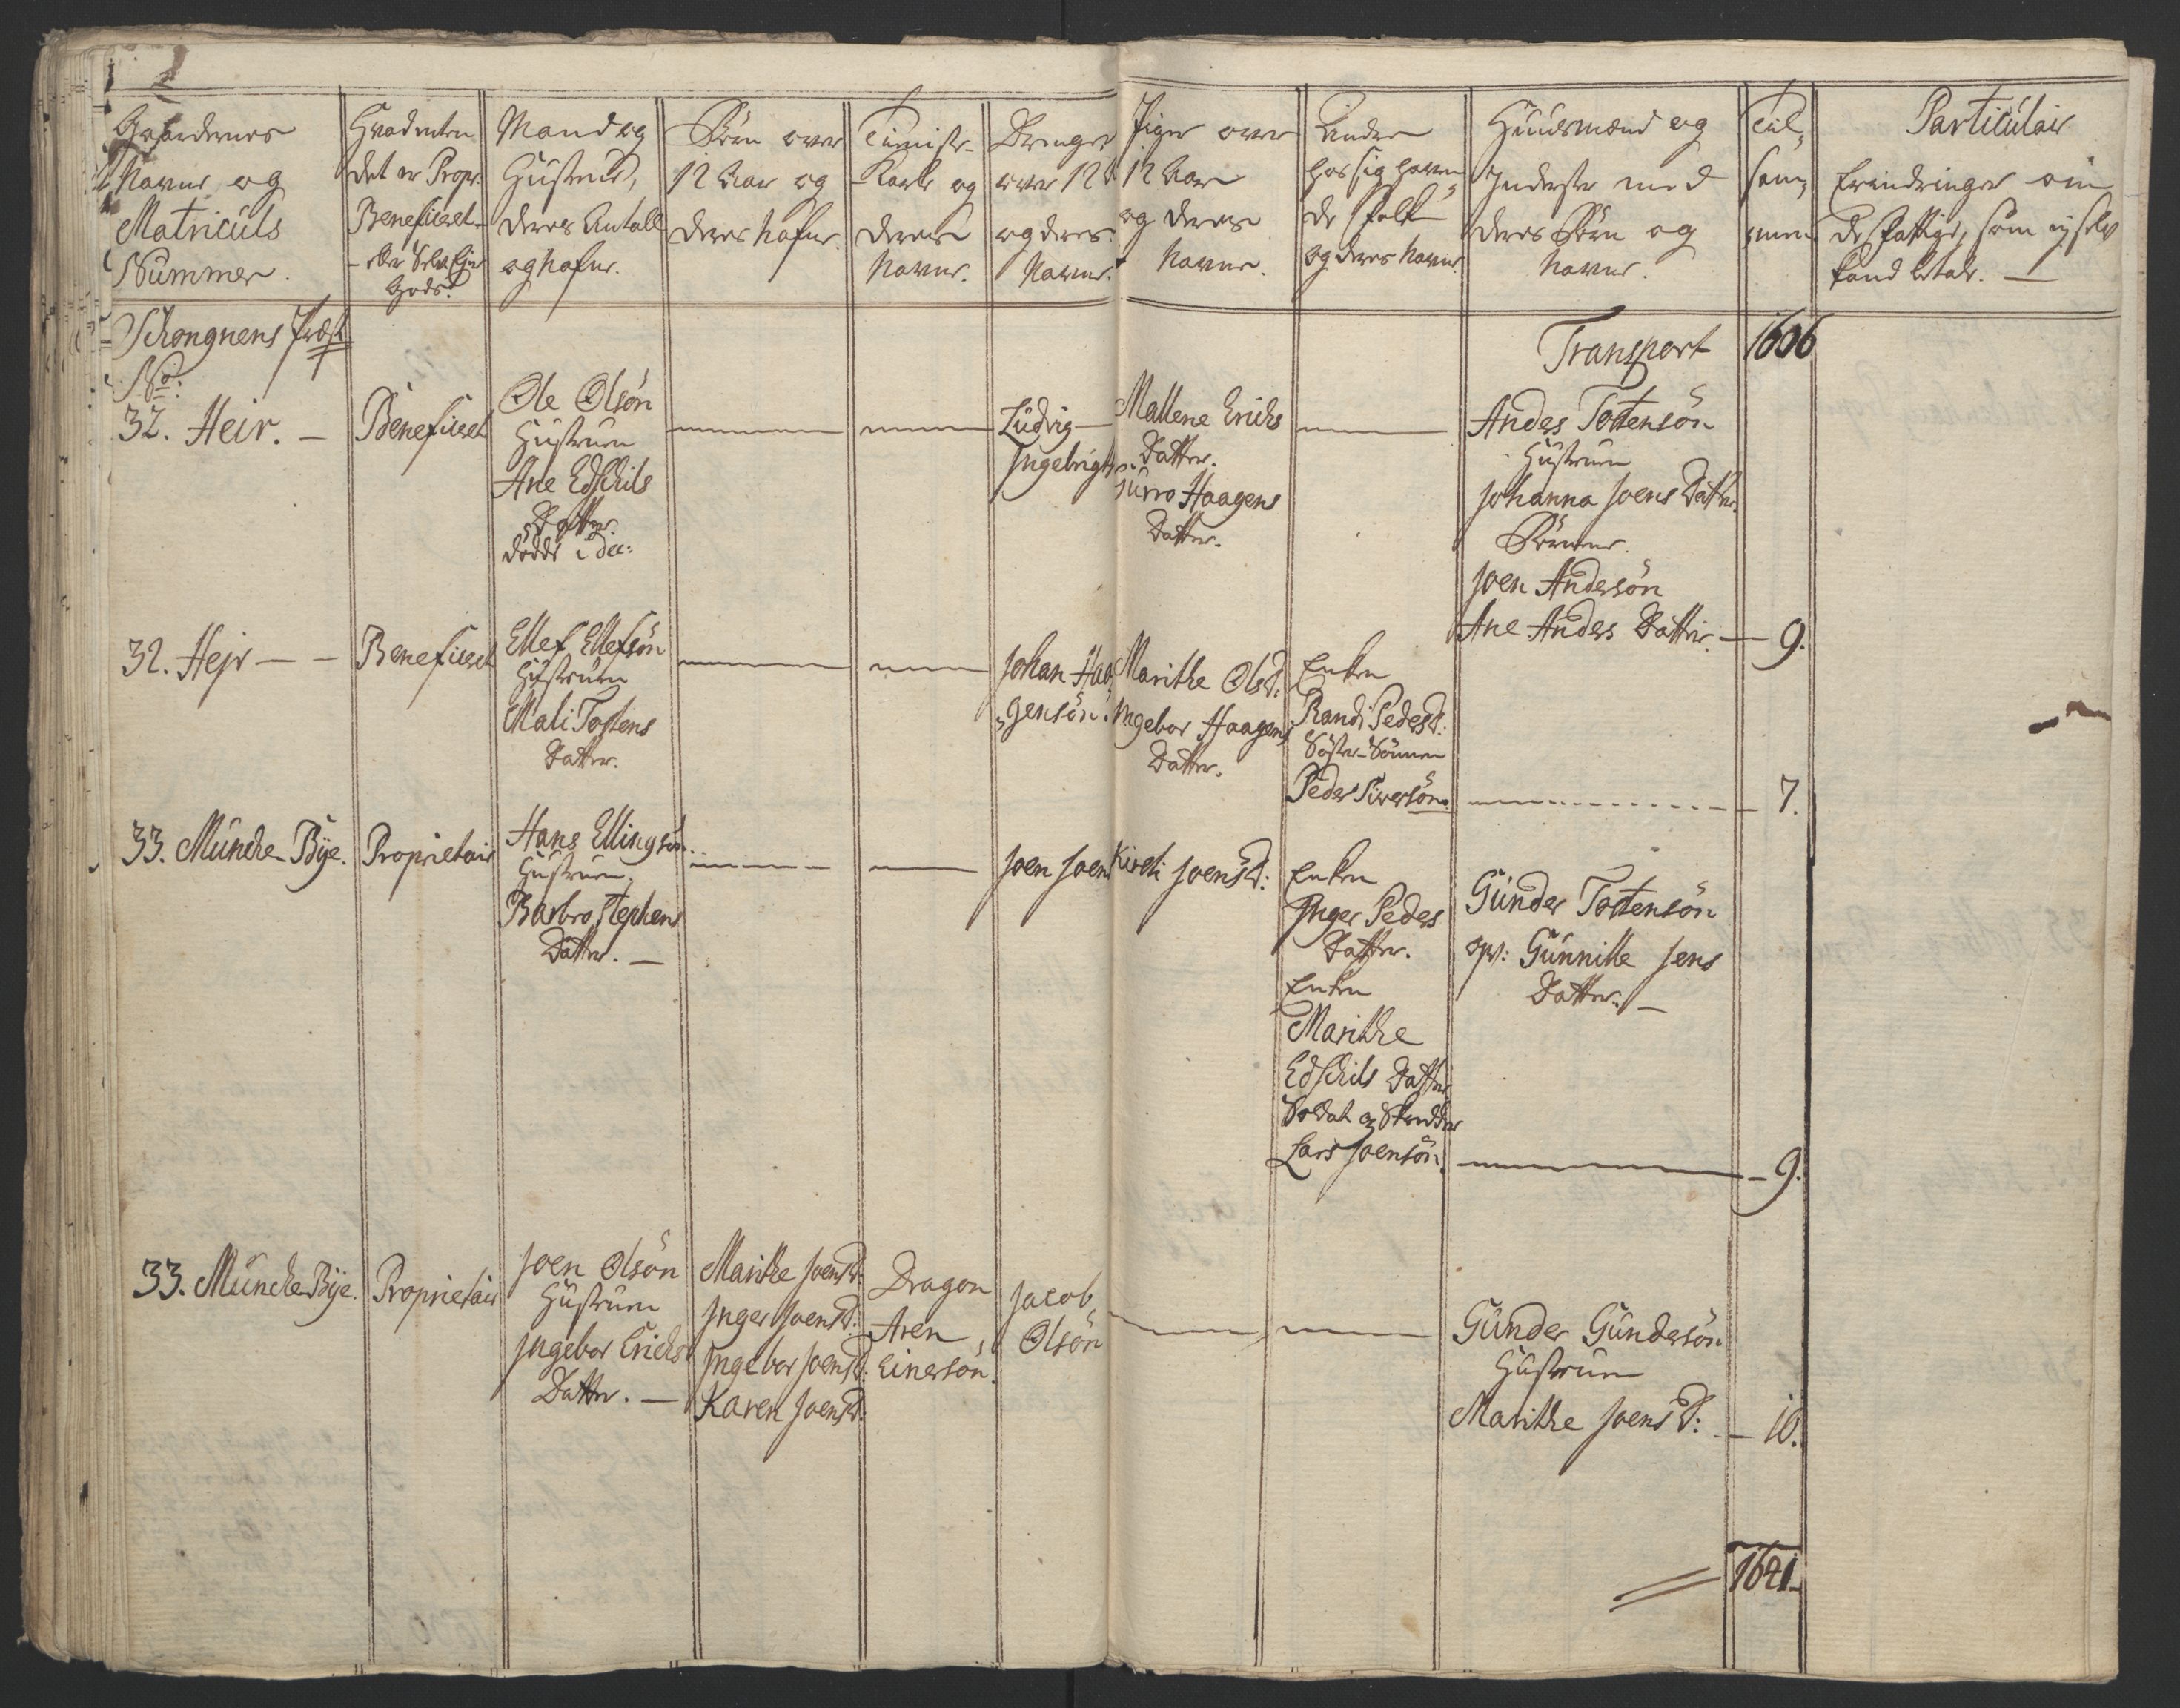 Gaardernes
Navne og
Matriculs
Nummer.
Hvad enten
det er Propr:
Beneficeret
eller Selv Ejer
Gods.
Mand og
Hustrue,
deres Antall
og Nafne.
Børn over
12 Aar og
deres Nafne.
Tieniste-
Karle og
deres
Navne.
Drenge
over 12 A
og deres
Navne.
Piger over
12 Aar
og deres
Navne.
Andre
hos sig haven-
de Folk
og deres Navne.
Huusmænd og
Inderster med
deres Børn og
Navne.
Til-
sam-
men
Particulair
Erindringer om
de Fattige, som ej selv
kand betale. —
Schongnens Præst
Transport 1606
No:
32. Heir. —
Beneficeret
Ole Olsön
Hustruen
Ane Edschils
Datter.
dödde i Dec:
Ludvig
Ingebrigts
Mallene Erichs
Datter.
Gurro Haagens
Datter.
Anders Tostensön
Hustruen
Johanna Joens Datter.
Börnene.
Joen Andersön
Ane Anders Datter. — 9.
32. Hejr — —
Beneficeret
Ellef Ellefsön
Hustruen
Mali Tostens
Datter.
Johan Haa-
gensön.
Marithe Olsd:
Ingebor Haagens
Datter.
Enken
Randi Pedersd:
Söster-Sönnen
Peder Siversön. — 7.
33. Münche-Bÿe.
Proprietair
Hans Ellingsön
Hustruen.
Barbro Stephens
Datter. —
Joen Joens
Kirsti Joensd:
Enken
Inger Peders
Datter.
Enken
Marithe
Edschils Datter
Soldat og Skredder
Lars Joensön.
Gunder Tostensön
Gunnille Jens
Datter. —
— 9.
33. Münche-Bÿe.
Proprietair
Joen Olsön
Hustruen
Ingebor Erichs
Datter. —
Marithe Joensd:
Inger Joensd:
Ingebor Joensd:
Karen Joensd:
Dragon
Aren
Einersön.
Jacob
Olsön
Gunder Gundersön
Hustruen
Marithe Joensd: — 10.
1641